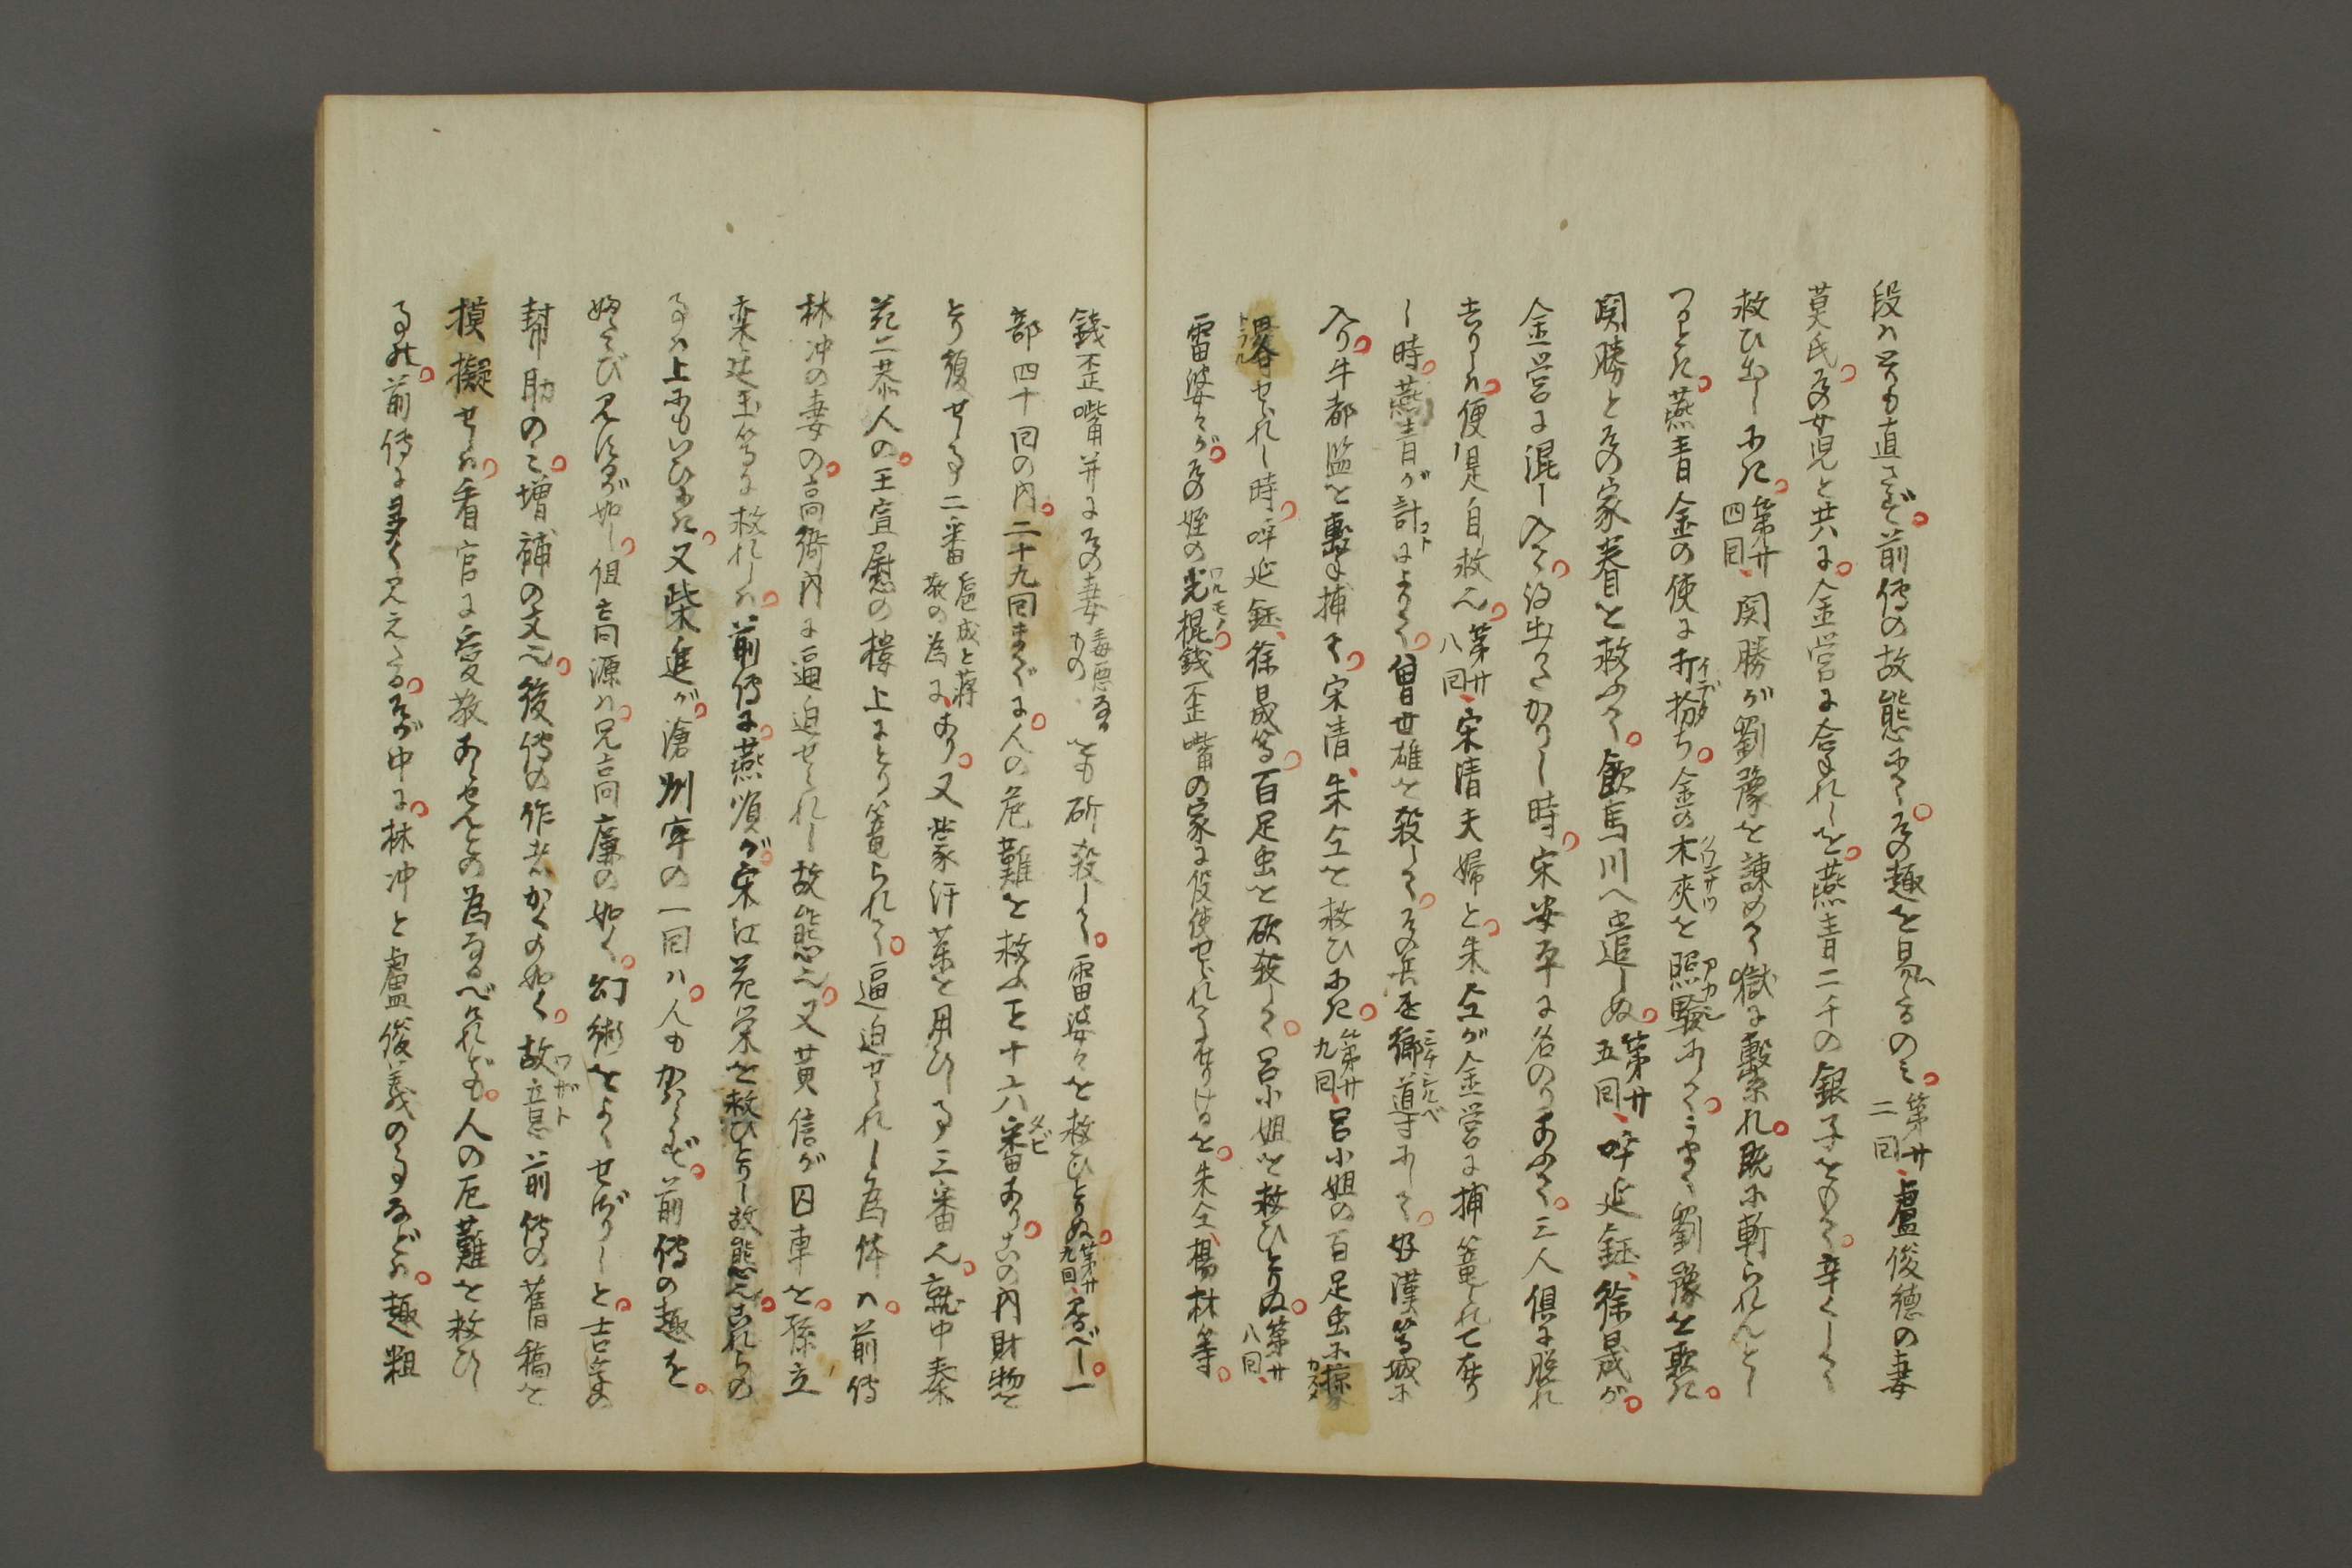 段ハ是も直さず。前傳の故態にて。その趣を易たるのミ。第廿二回、盧俊徳の妻
莫氏。その女児と共に。金営に合られしを。燕青二千の銀子をもて。辛くして
救ひ出しにき。第廿四回、関勝が劉豫を諌めて獄に繋れ。既に斬られんとし
つるとき。燕青金の使に打扮ち。金の木夾を照験にして。うまく劉豫を欺き。
関勝とその家眷を救ふて。飲馬川へ遣しぬ。第廿五回、呼延鈺、徐晟が。
金営に混し入て。得出でざりし時。宋安平に名のりあふて。三人倶に脱れ
去りしハ。便是自救也。第廿八回、宋清夫婦と。朱仝が金営に捕篭られて在り
し時。燕青が計によりて。曽世雄を殺して。その兵を郷導にして。好漢等城に
入り。牛都監を撃捕て。宋清、朱仝を救ひにき。第廿九回、呂小姐の百足虫に掠
畧せられし時。呼延鈺、徐晟等。百足虫を砍殺して。呂小姐を救ひとりぬ。第廿八回、
雷婆々が。その姪の光棍。銭歪嘴の家に役使せられて在りけるを。朱仝、楊林等。
銭歪嘴并にその妻毒悪なるをも斫殺して。雷婆々を救ひとりぬ。第廿九回、なるべし。一
部四十回の内。二十九回までに。人の危難を救ふこと十六番あり。この内財物を
とり復せる事二番扈成と蒋敬の為に、あり。又蒙汗薬を用ひし事三番也。就中秦
花二恭人の。王宣慰の楼上にとり篭られて。逼迫せられし為体ハ。前傳
林冲の妻の。高衙内に逼迫せられし故態也。又黄信が囚車を。孫立
欒廷玉等に救れしハ。前傳に。燕順が。宋江花栄を救ひとりし故態也。これらの
事ハ上にもいひにき。又柴進が。滄州牢の一回ハ。人もかハらず。前傳の趣を。
婢こび見るが如し。但高源ハ。兄高廉の如く。幻術をよくせざりしと。吉孚の
幇助のミ。増補の文也。後傳の作者かくの如く。故意前傳の舊稿を
摸擬せしハ。看官に愛敬あらせんとの為なるべけれども。人の厄難を救ひし
事ハ。前傳に多く見えたる。そが中に。林冲と盧俊義の事などハ。趣粗